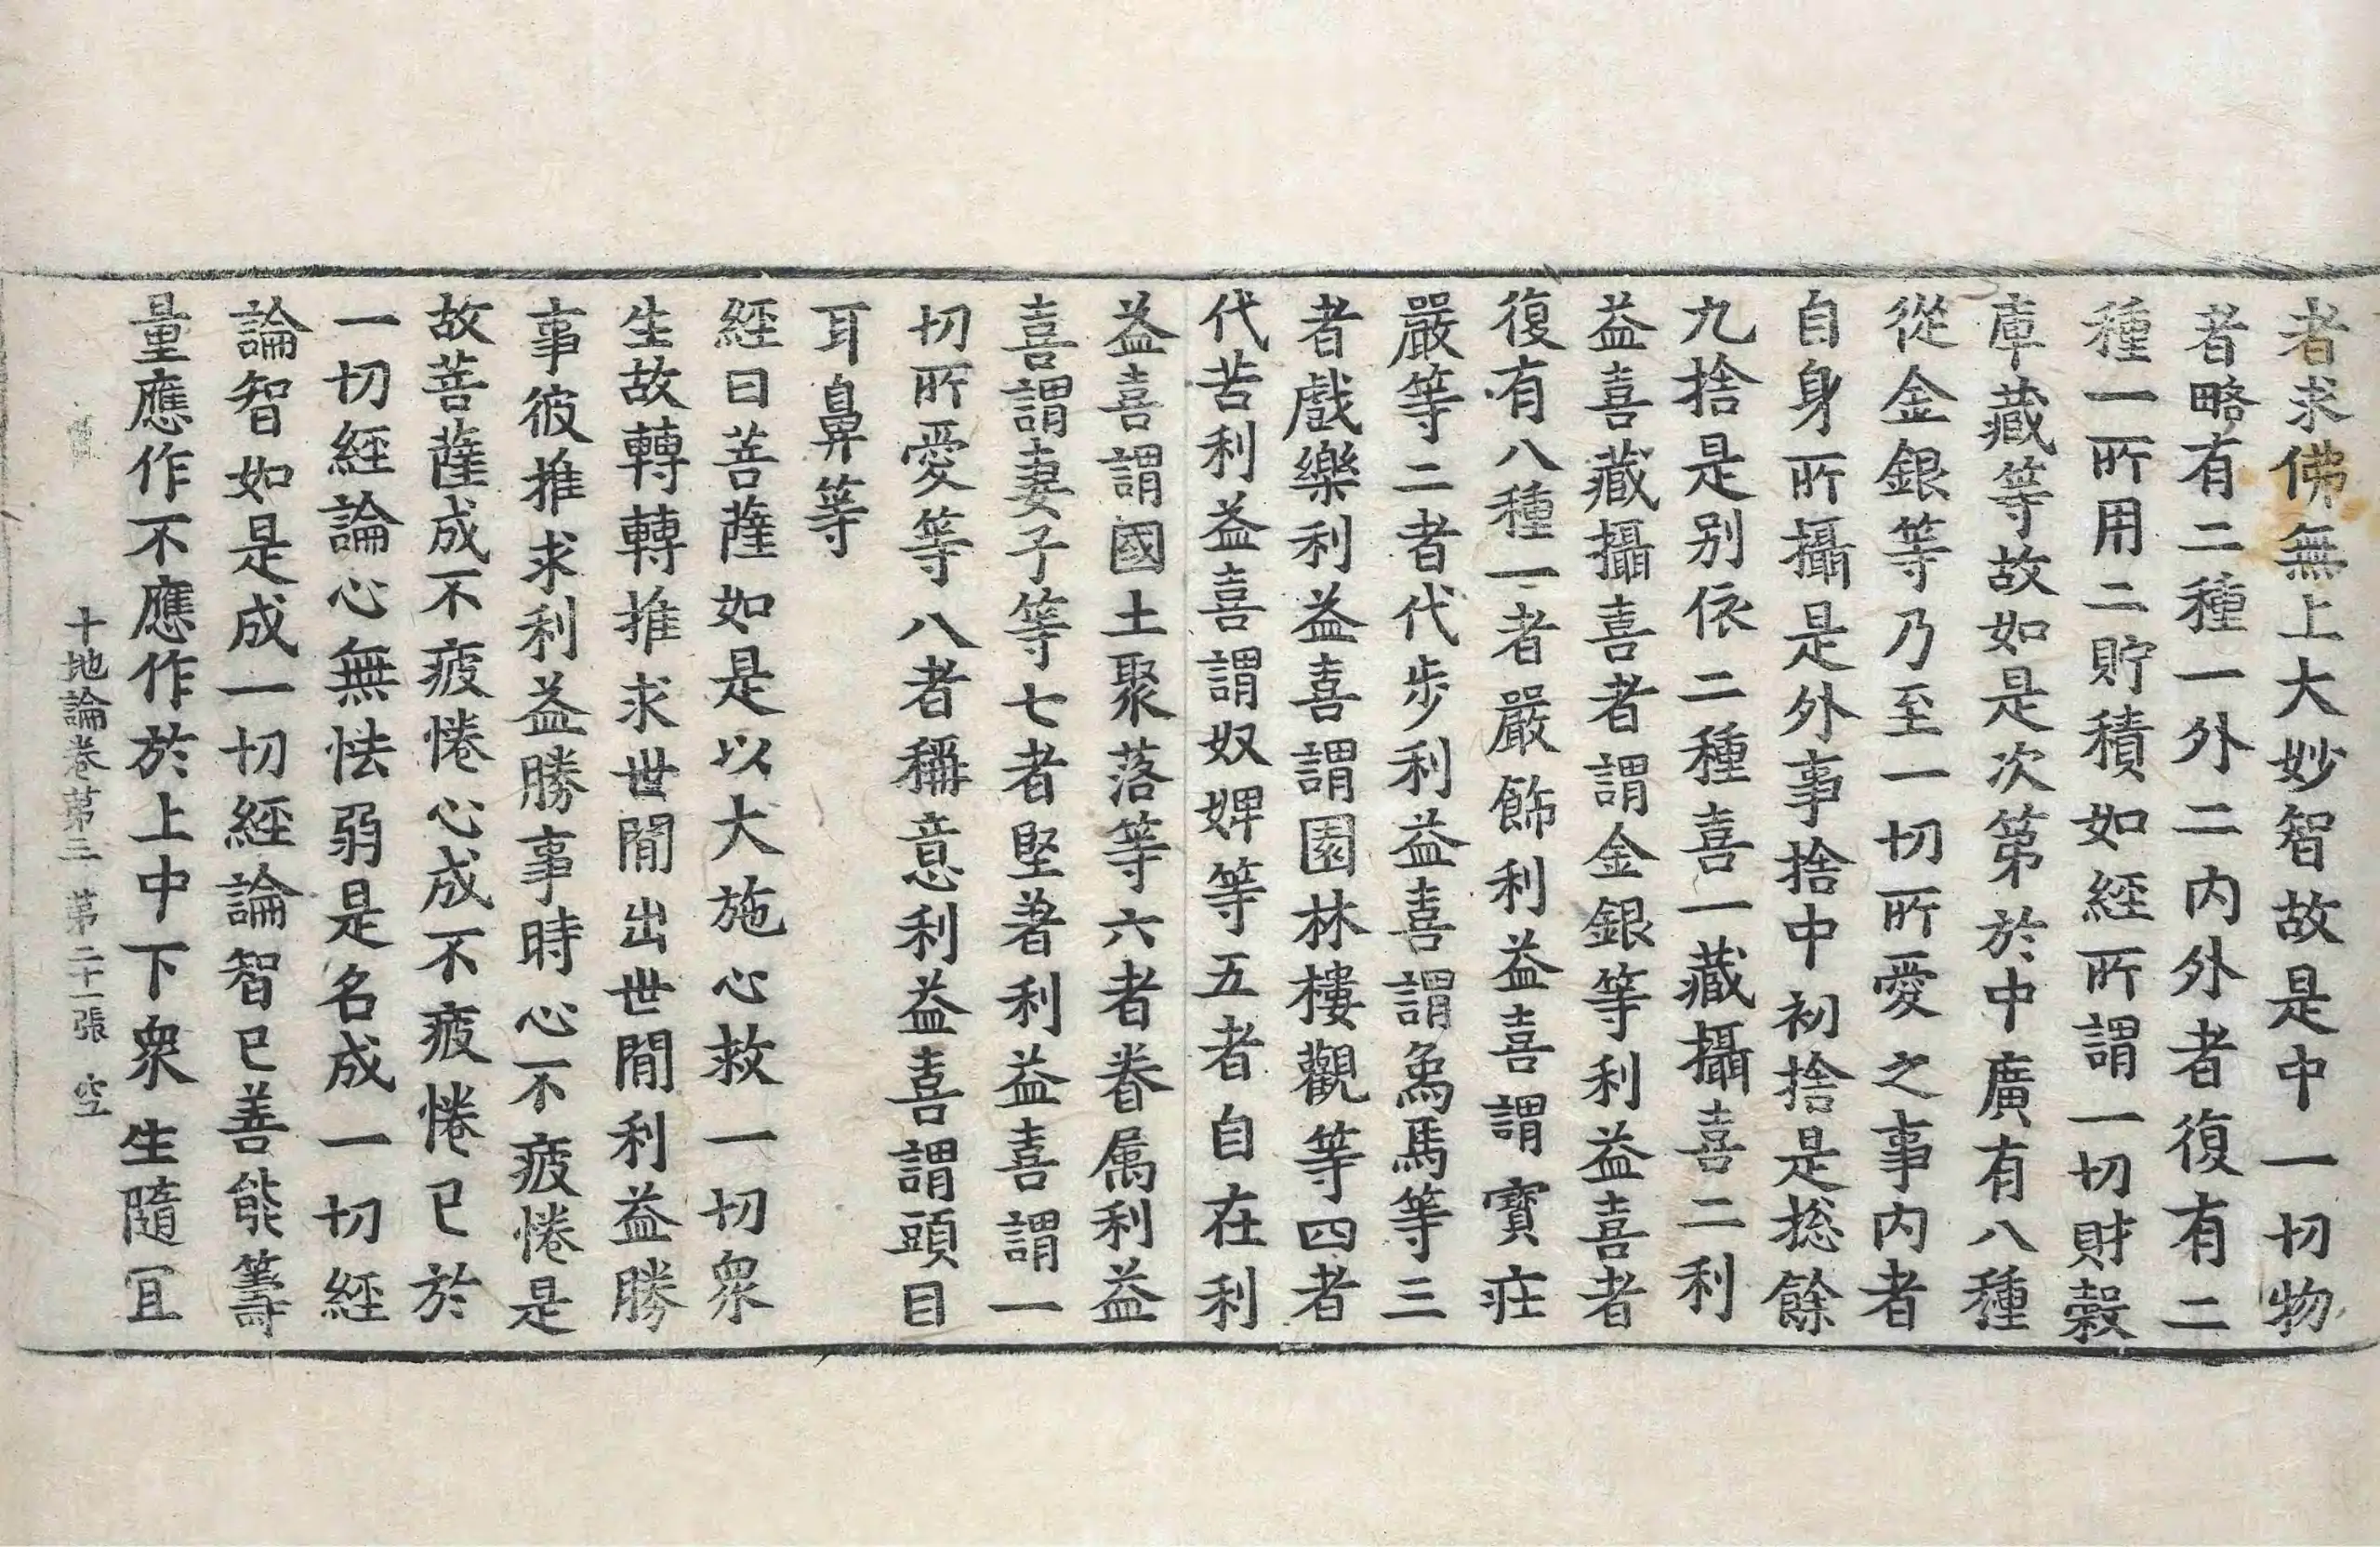 者求佛無上大妙智故是中一切物
者略有二種一外二内外者復有二
種一所用二貯積如經所謂一切財穀
庫藏等故如是次第於中廣有八種
從金銀等乃至一切所愛之事内者
自身所攝是外事捨中初捨是捴餘
九捨是别依二種喜一藏攝喜二利
益喜藏攝喜者謂金銀等利益喜者
復有八種一者嚴飾利益喜謂寶疘
嚴等二者代步利益喜謂𤉯馬等三
者戲樂利益喜謂園林樓觀等四者
代苦利益喜謂奴婢等五者自在利
益喜謂國土聚落等六者眷属利益
喜謂妻子等七者堅著利益喜謂一
切所愛等八者稱意利益喜謂頭目
耳鼻等
經曰菩薩如是以大施心救一切衆
生故轉轉推求世閒出世閒利益勝
事彼推求利益勝事時心不疲惓是
故菩薩成不疲惓心成不疲惓已於
一切經論心無怯弱是名成一切經
論智如是成一切經論智已善能籌
量應作不應作於上中下衆生隨冝
十地論卷第三 第二十一張 空